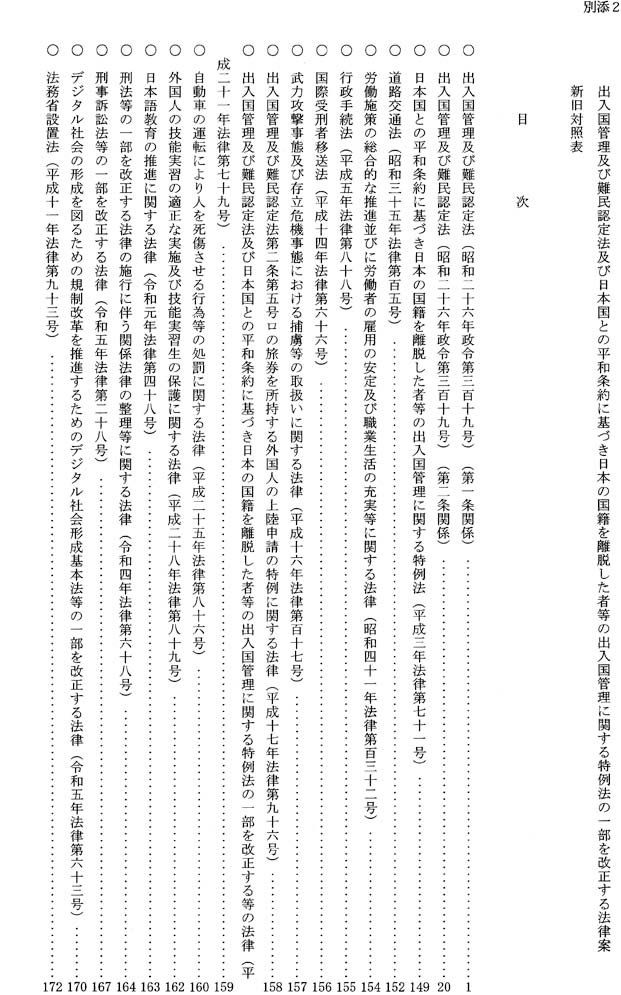 別添2
出入国管理及び難民認定法及び日本国との平和条約に基づき日本の国籍を離脱した者等の出入国管理に関する特例法の一部を改正する法律案
新旧対照表
目次
○ 出入国管理及び難民認定法（昭和二十六年政令第三百十九号）（第一条関係）‥‥‥‥‥‥‥‥‥‥ 1
○ 出入国管理及び難民認定法（昭和二十六年政令第三百十九号）（第二条関係）‥‥‥‥‥‥‥‥‥‥ 20
○ 日本国との平和条約に基づき日本の国籍を離脱した者等の出入国管理に関する特例法（平成三年法律第七十一号）‥‥‥‥‥‥ 149
○ 道路交通法（昭和三十五年法律第百五号）‥‥‥‥‥‥‥‥‥‥ 152
○ 労働施策の総合的な推進並びに労働者の雇用の安定及び職業生活の充実等に関する法律（昭和四十一年法律第百三十二号）‥‥‥‥ 154
○ 行政手続法（平成五年法律第八十八号）‥‥‥‥‥‥‥‥‥‥ 155
○ 国際受刑者移送法（平成十四年法律第六十六号）‥‥‥‥‥‥‥‥‥‥ 156
○ 武力攻撃事態及び存立危機事態における捕虜等の取扱いに関する法律（平成十六年法律第百十七号）‥‥‥‥‥‥‥‥ 157
○ 出入国管理及び難民認定法第二条第五号ロの旅券を所持する外国人の上陸申請の特例に関する法律（平成十七年法律第九十六号）‥‥‥‥ 158
○ 出入国管理及び難民認定法及び日本国との平和条約に基づき日本の国籍を離脱した者等の出入国管理に関する特例法の一部を改正する等の法律（平
成二十一年法律第七十九号）‥‥‥‥‥‥‥‥‥‥ 159
○ 自動車の運転により人を死傷させる行為等の処罰に関する法律（平成二十五年法律第八十六号）‥‥‥‥‥‥‥‥ 160
○ 外国人の技能実習の適正な実施及び技能実習生の保護に関する法律（平成二十八年法律第八十九号）‥‥‥‥‥‥‥‥ 162
○ 日本語教育の推進に関する法律（令和元年法律第四十八号）‥‥‥‥‥‥‥‥‥‥ 163
○ 刑法等の一部を改正する法律の施行に伴う関係法律の整理等に関する法律（令和四年法律第六十八号）‥‥‥‥‥‥‥‥ 164
○ 刑事訴訟法等の一部を改正する法律（令和五年法律第二十八号）‥‥‥‥‥‥‥‥‥‥ 167
○ デジタル社会の形成を図るための規制改革を推進するためのデジタル社会形成基本法等の一部を改正する法律（令和五年法律第六十三号）‥‥ 170
○ 法務省設置法（平成十一年法律第九十三号）‥‥‥‥‥‥‥‥‥‥ 172